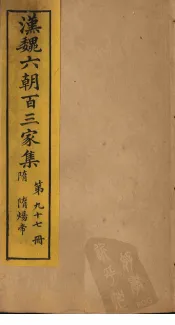 漢魏六朝百三家集
隋
隋煬帝
第九十七冊